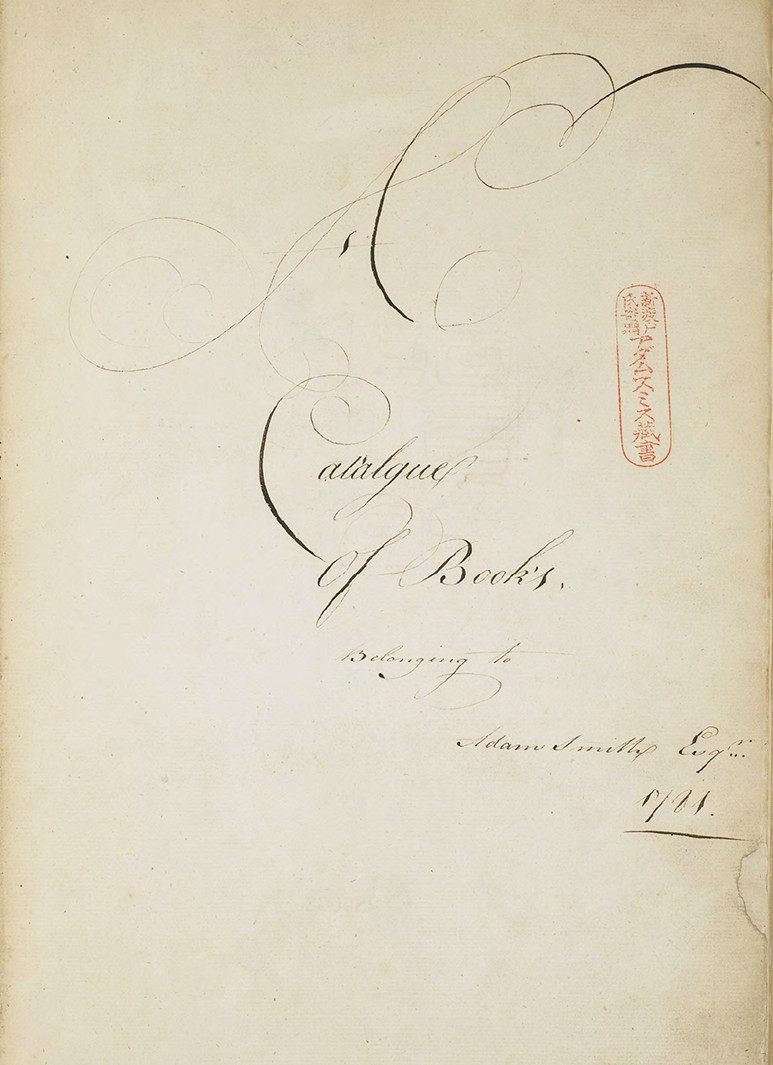 A
Catalgue
Of Book's.
Belonging to
Adam Smith Esqr.
1781.
新渡戸
氏寄贈
アダムスミス藏書